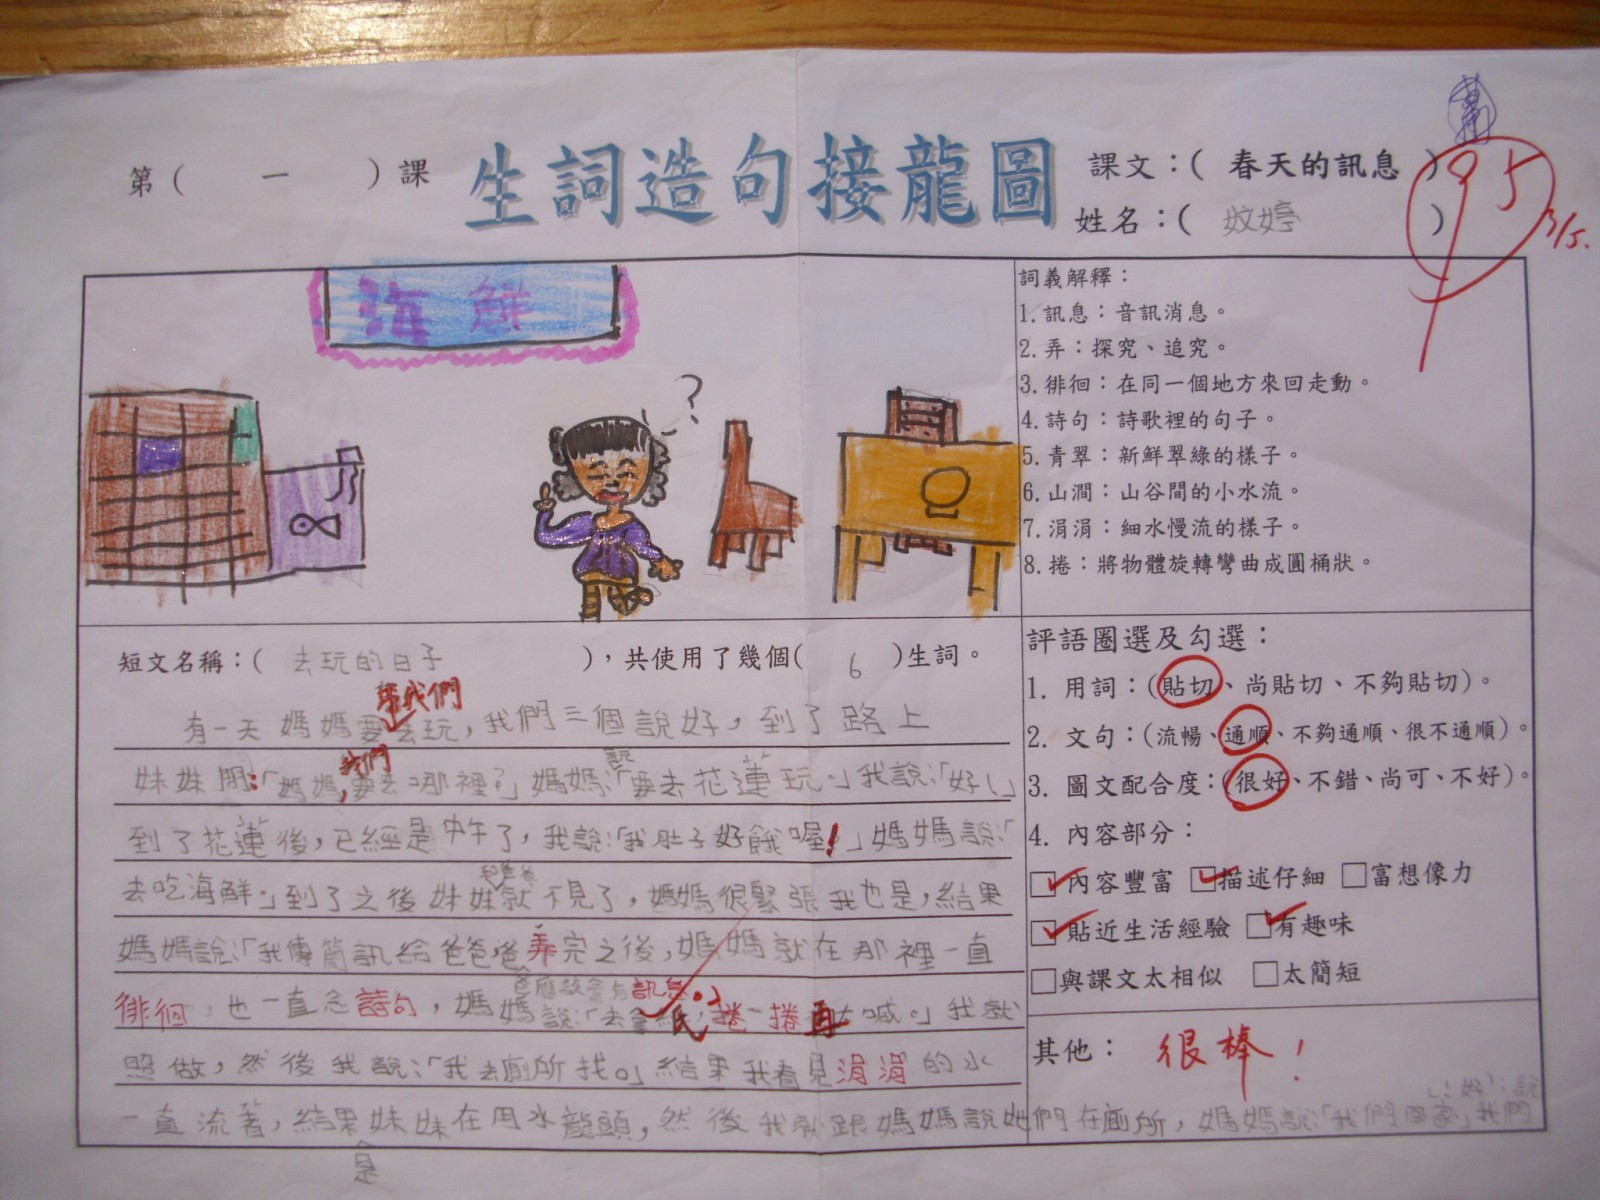 第( 一 )課
生詞造句接龍圖
課文:( 春天的訊息 )
姓名:( 妏婷 )
95
3/5.
海鮮
?
詞義解釋:
1.訊息:音訊消息。
2.弄:探究、追究。
3.徘徊:在同一個地方來回走動。
4.詩句:詩歌裡的句子。
5.青翠:新鮮翠綠的樣子。
6.山澗:山谷間的小水流。
7.涓涓:細水慢流的樣子。
8.捲:將物體旋轉彎曲成圓桶狀。
短文名稱:( 去玩的日子 ),共使用了幾個( 6 )生詞。
帶我們
有一天媽媽要去玩,我們三個說好,到了路上
我們
說
妹妹問:「媽媽,要去哪裡?」媽媽:「要去花蓮玩。」我說:「好!」
到了花蓮後,已經是中午了,我說:「我肚子好餓喔!」媽媽說:「
和爸爸
去吃海鮮。」到了之後妹妹就不見了,媽媽很緊張我也是,結果
媽媽說:「我傳簡訊給爸爸,爸爸應該會有訊息。」弄完之後,媽媽就在那裡一直
徘徊,也一直念詩句,媽媽說:「去拿紙,捲一捲再大喊。」我就
照做,然後我說:「我去廁所找。」結果我看見涓涓的水
一直流著,結果是妹妹在用水龍頭,然後我就跟媽媽說她們在廁所,媽媽說:「我們回家」我們
說:「好!」
評語圈選及勾選:
1. 用詞:(貼切、尚貼切、不夠貼切)。
2. 文句:(流暢、通順、不夠通順、很不通順)。
3. 圖文配合度:(很好、不錯、尚可、不好)。
4. 內容部分:
☑內容豐富 ☑描述仔細 □富想像力
☑貼近生活經驗 ☑有趣味
□與課文太相似 □太簡短
其他: 很棒!